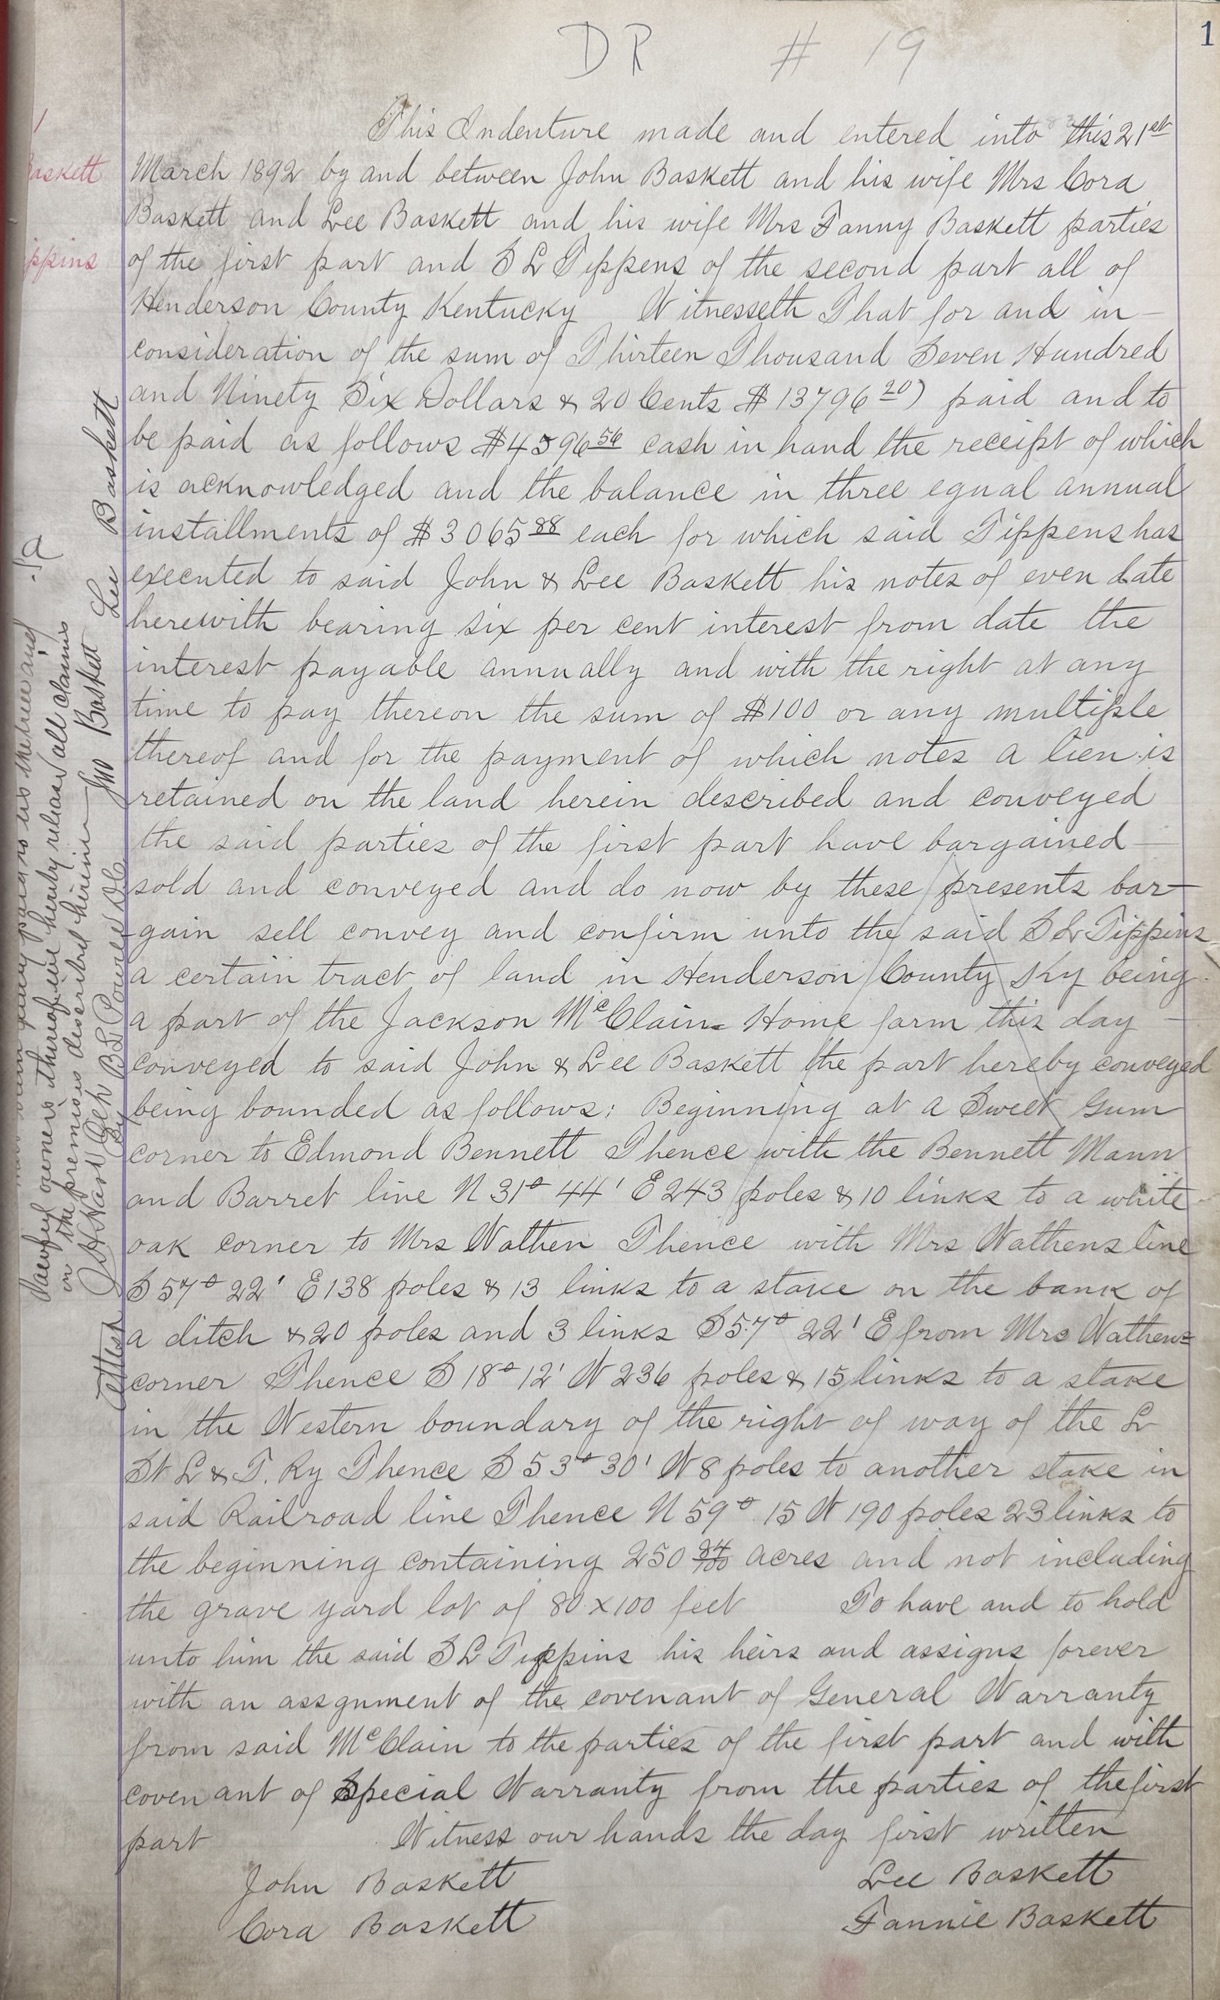 DR # 19
1
This Indenture made and entered into this 21st
March 1892 by and between John Baskett and his wife Mrs Cora
Baskett and Lee Baskett and his wife Mrs Fanny Baskett parties
of the first part and S L Tippens of the second part all of
Henderson County Kentucky Witnesseth That for and in-
consideration of the sum of Thirteen Thousand Seven Hundred
and Ninety Six Dollars & 20 Cents $13796 20) paid and to
be paid as follows $4596 56 cash in hand the receipt of which
is acknowledged and the balance in three equal annual
installments of $3065 88 each for which said Tippens has
executed to said John & Lee Baskett his notes of even date
herewith bearing six per cent interest from date the
interest payable annually and with the right at any
time to pay thereon the sum of $100 or any multiple
thereof and for the payment of which notes a lien is
retained on the land herein described and conveyed
the said parties of the first part have bargained
sold and conveyed and do now by these presents bar-
gain sell convey and confirm unto the said S L Tippins
a certain tract of land in Henderson County Ky being
a part of the Jackson McClain Home farm this day
conveyed to said John & Lee Baskett the part hereby conveyed
being bounded as follows: Beginning at a Sweet Gum
corner to Edmond Bennett Thence with the Bennett Mann
and Barret line N 31° 44' E 243 poles & 10 links to a white
oak corner to Mrs Wathen Thence with Mrs Wathens line
S 57° 22' E 138 poles & 13 links to a stake on the bank of
a ditch & 20 poles and 3 links S 57° 22' E from Mrs Wathens
corner Thence S 18° 12' W 236 poles & 15 links to a stake
in the Western boundary of the right of way of the L
St L & T. Ry Thence S 53° 30' W 8 poles to another stake in
said Railroad line Thence N 59° 15 W 190 poles 23 links to
the beginning containing 250 84/100 acres and not including
the grave yard lot of 80 x 100 feet To have and to hold
unto him the said S L Tippins his heirs and assigns forever
with an assgnment of the covenant of General Warranty
from said McClain to the parties of the first part and with
covenant of Special Warranty from the parties of the first
part Witness our hands the day first written
John Baskett Lee Baskett
Cora Baskett Fannie Baskett
Baskett
ippins
lawful owners thereof we hereby release all claims
in the premises described herein
Jno Baskett Lee Baskett
Attest
By B L Powell D.C.